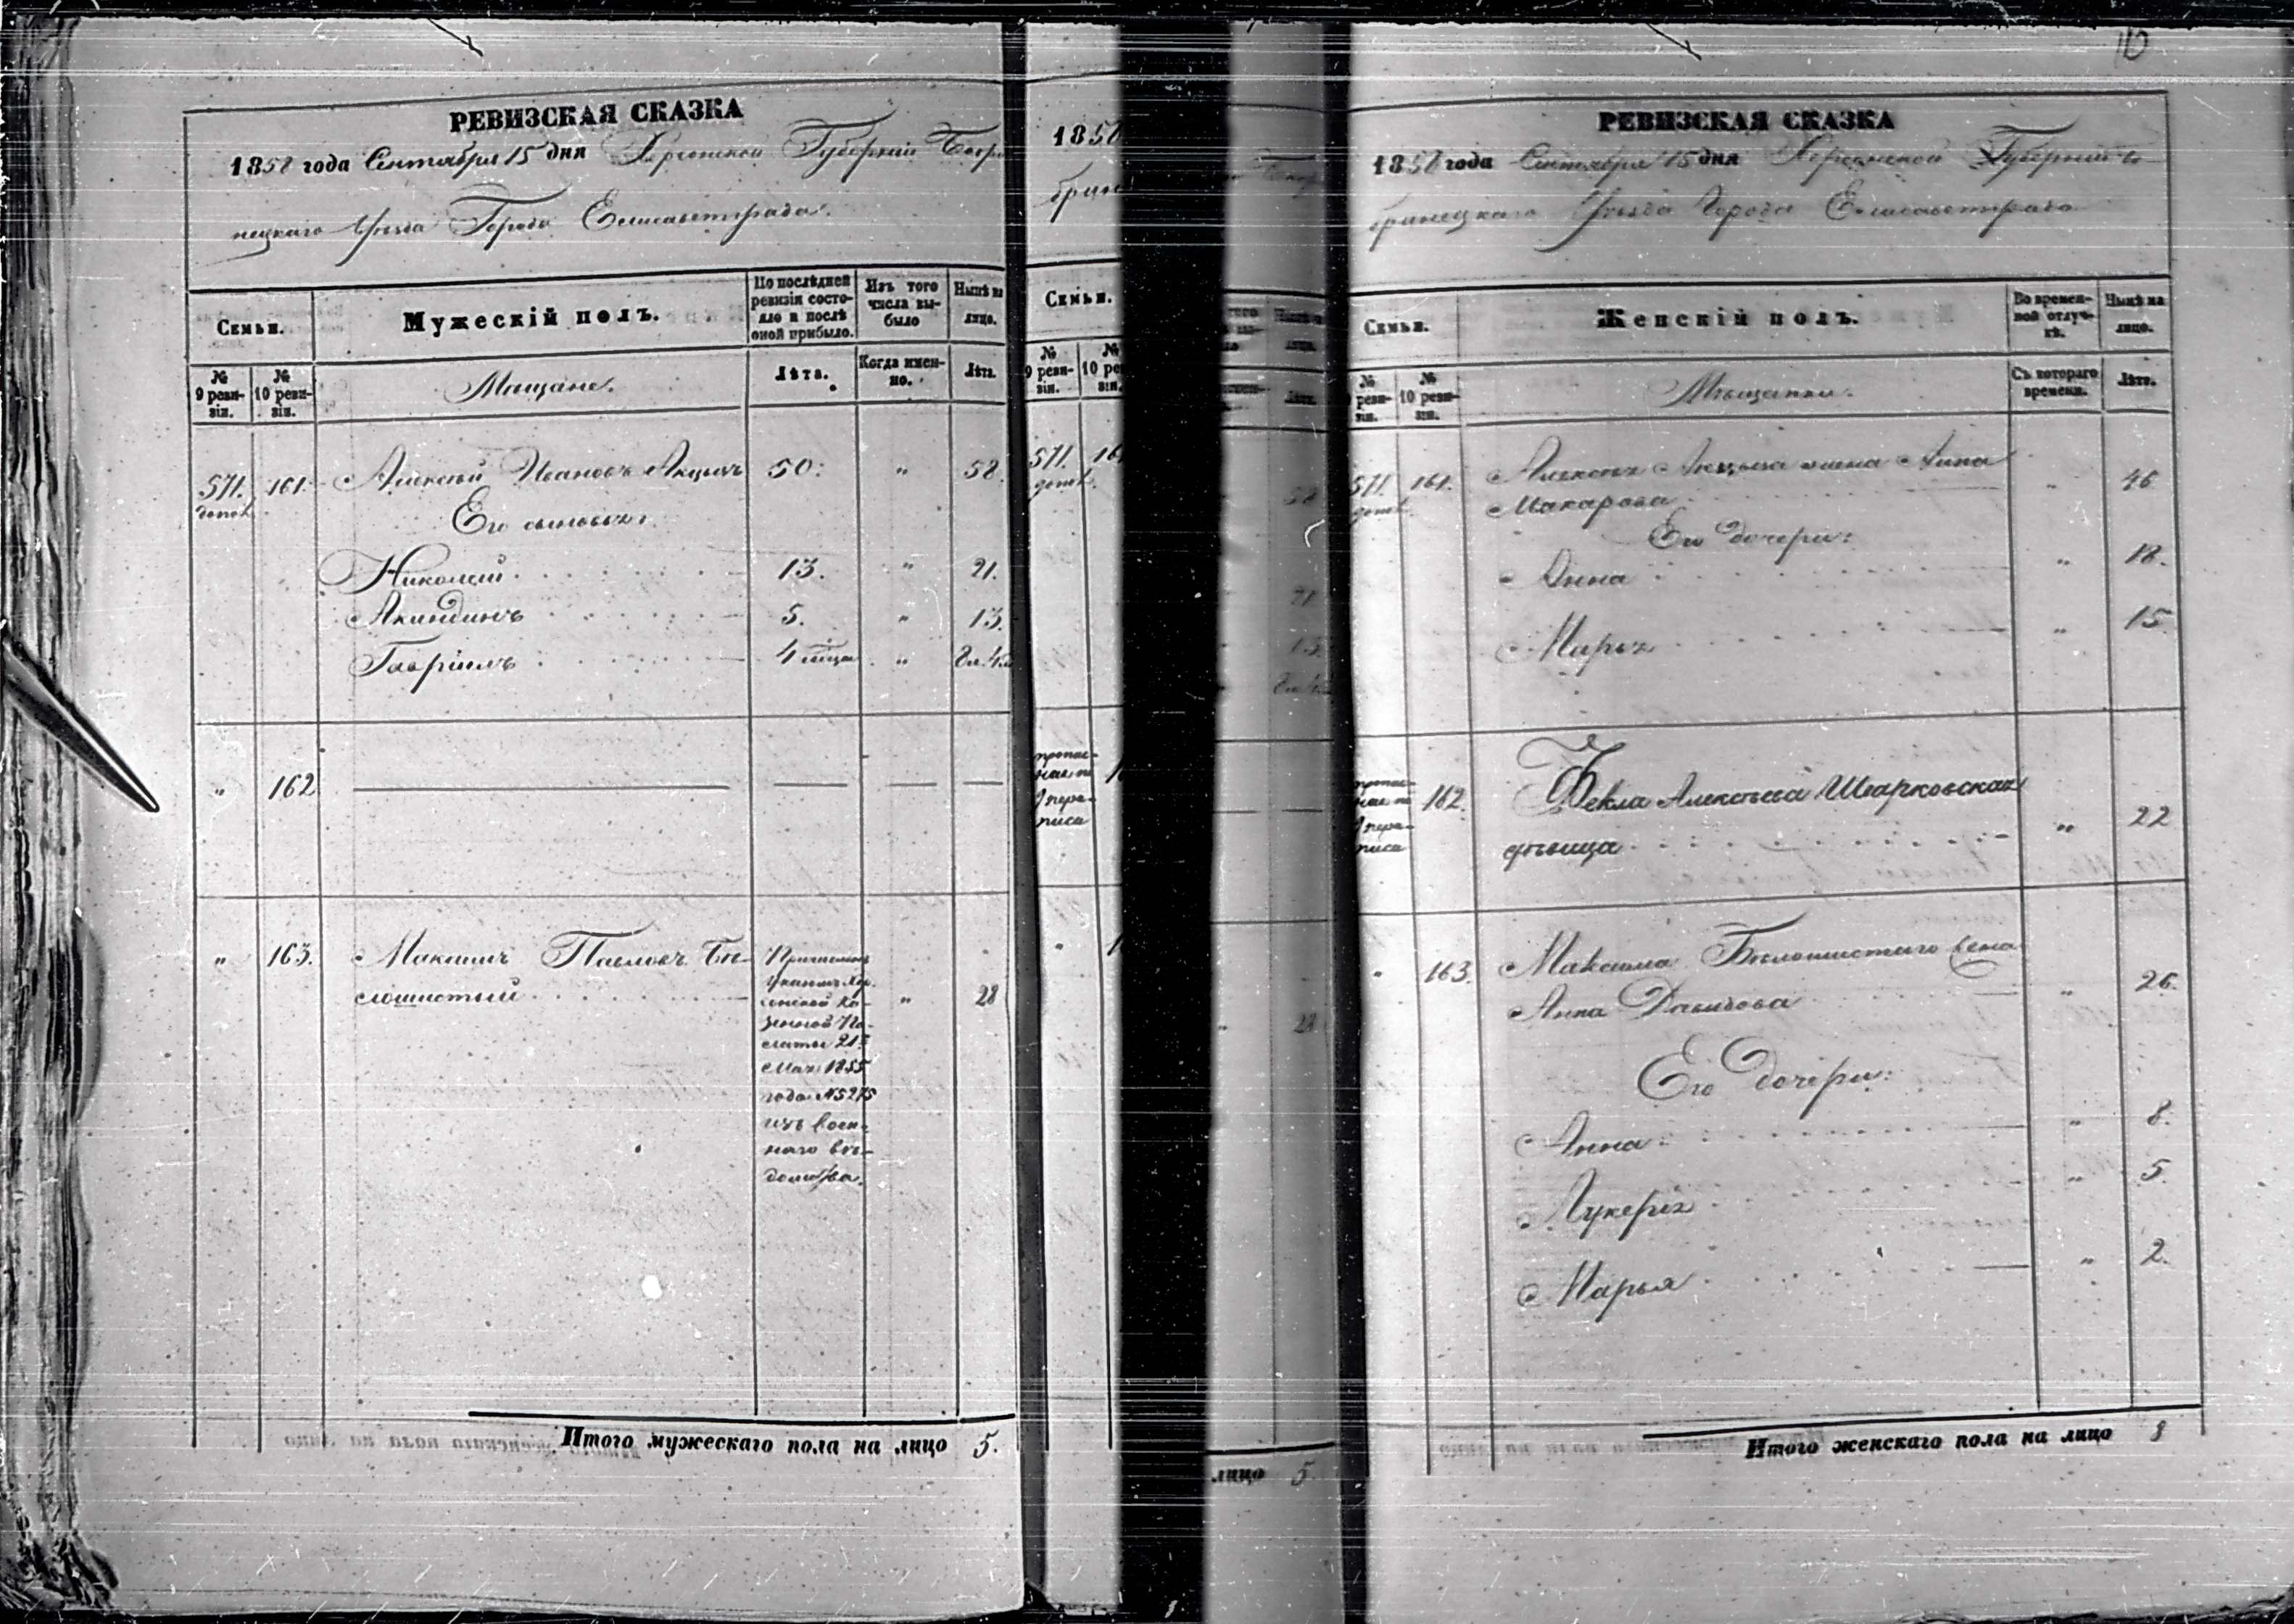 РЕВИЗСКАЯ СКАЗКА
1858 года Сентября 15 дня Херсонской Губернии Бобри
нецкаго Уѣзда Города Елисаветграда.
Семьи.
Мужескій полъ.
По послѣдней ревизіи состояло и послѣ оной прибыло.
Изъ того числа выбыло
Нынѣ на лицо.
№ 9 ревизіи.
№ 10 ревизіи.
Мѣщане.
Лѣта.
Когда именно.
Лѣта.
571. 161. Алексѣй Ивановъ 50. " 58.
Его сыновья:
Николай 13. " 21.
Акиндинъ 5. " 13.
Гавріилъ 4 мѣсца "
" 162
" 163. Максимъ Павловъ Бѣ-
лошистый " 28
Причисленъ
Указомъ Хер-
сонской Ка-
зенной Па-
латы 21
Мая 1855
года № 5275
изъ воен-
наго вѣ-
домства.
Итого мужескаго пола на лицо 5.
1858
брин
Семьи.
№ 9 ревизіи.
№ 10 реви
зіи.
571. 16
пропис-
9 пере-
писи
28
лицо 5
РЕВИЗСКАЯ СКАЗКА
1858 года Сентября 15 дня Херсонской Губерніи Бо
бринецкаго Уѣзда Города Елисаветграда
Семьи.
Женскій полъ.
Во временной отлучкѣ.
Нынѣ на лицо.
№ 9 ревизіи.
№ 10 ревизіи.
Мѣщанки.
Съ котораго времени.
Лѣта.
571. 161. Алексѣя жена Анна
Макарова " 46
Его дочери:
Анна " 18.
Марья " 15.
162. Фекла Алексѣева Шарковская
дѣвица " 22
" 163. Максима Бѣлошистаго жена
Анна Давидова " 26.
Его дочери:
Анна " 8.
Лукерія " 5.
Марья " 2.
Итого женскаго пола на лицо 8